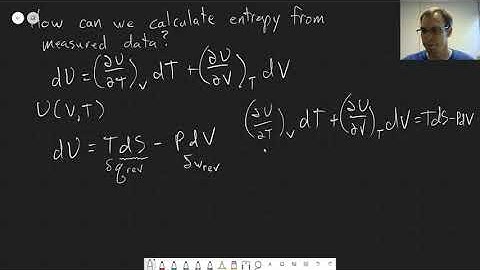 How can we calculate entropy from
measured data?
dU = (∂U/∂T)_V dT + (∂U/∂V)_T dV
U(V,T)
dU = TdS - PdV
δq_rev δw_rev
(∂U/∂T)_V dT + (∂U/∂V)_T dV = TdS - PdV